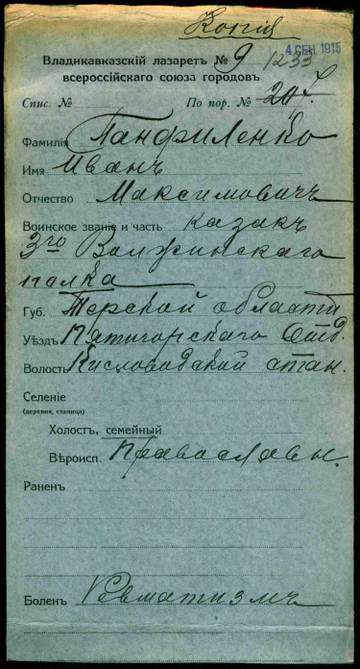 Копія
4 СЕН. 1915
Владикавказскій лазаретъ № 9
1233
всероссійскаго союза городовъ
Спис. № По пор. № 207.
Фамилія Панфиленко
Имя Иванъ
Отчество Максимовичъ
Воинское званіе и часть казакъ
3го Волжинскаго
полка
Губ. Терской области
Уѣздъ Пятигорскаго Отд.
Волость Кисловодской стан.
Селеніе
(деревня, станица)
Холостъ, семейный
Вѣроисп. Православн.
Раненъ
Боленъ Ревматизмъ